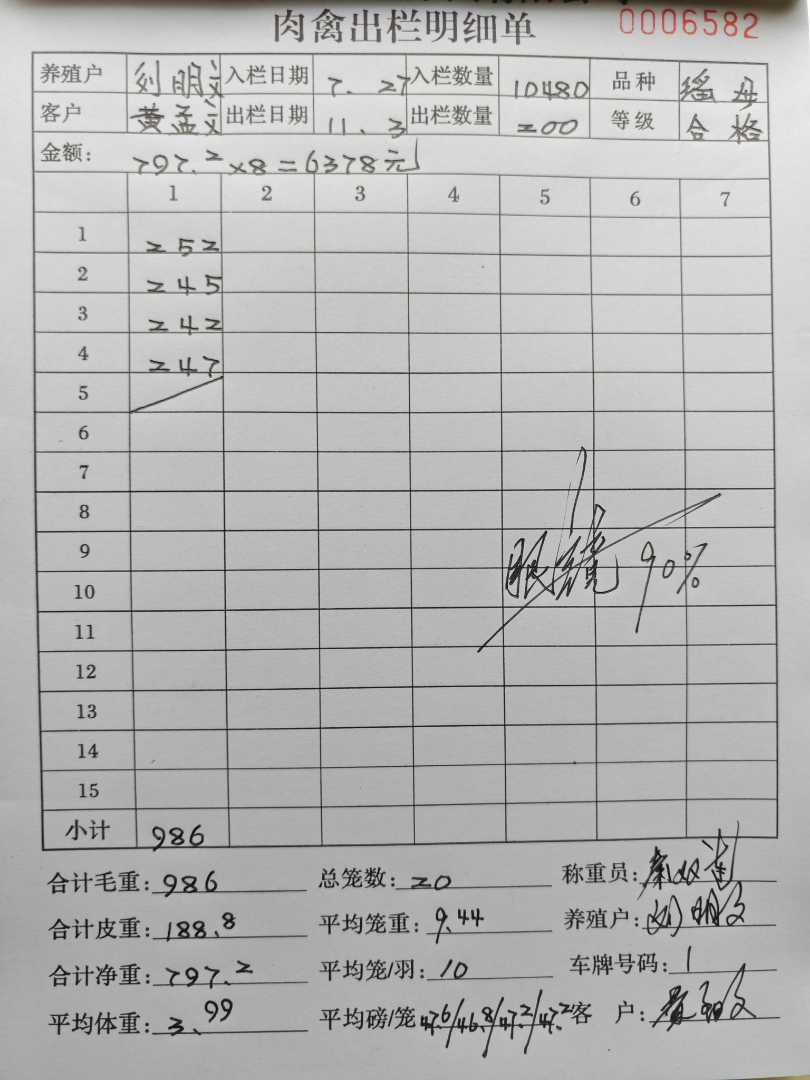 肉禽出栏明细单 0006582
养殖户 刘明文 入栏日期 7.27 入栏数量 10480 品种 瑶母
客户 黄孟文 出栏日期 11.3 出栏数量 200 等级 合格
金额: 797.2×8=6378元
1 2 3 4 5 6 7
1 252
2 245
3 242
4 247
5
6
7
8
9 眼镜 90%
10
11
12
13
14
15
小计 986
合计毛重: 986 总笼数: 20 称重员:
合计皮重: 188.8 平均笼重: 9.44 养殖户: 刘明文
合计净重: 797.2 平均笼/羽: 10 车牌号码: 1
平均体重: 3.99 平均磅/笼 47.6/46.8/47.2/47.2 客 户: